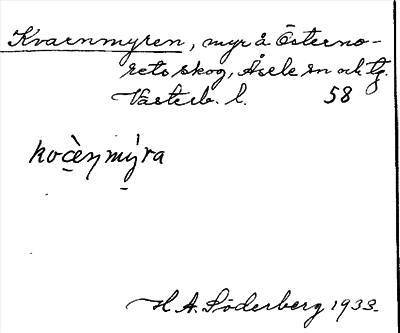 Kvarnmyren, myr å Österno-
rets skog, Åsele sn och tg.
Västerb. l. 58
H. A. Söderberg 1933.